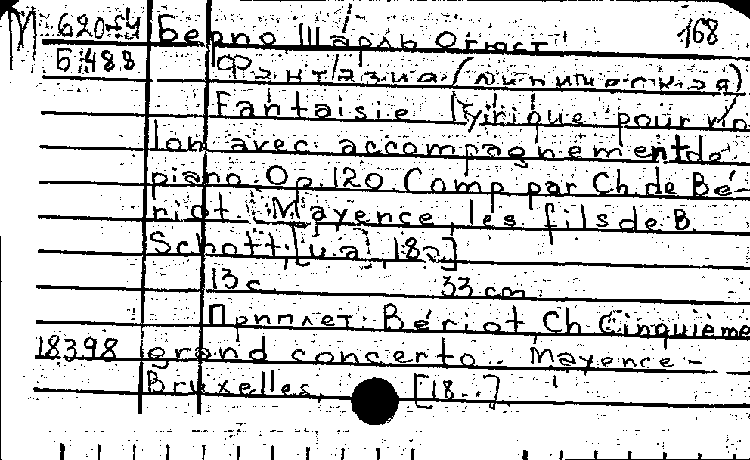 М 620-54 Берио Шарль Огюст 168
Б 488 Фантазия (лирическая)
Fantaisie lyrique pour vio
lon avec accompagnement de
piano. Op. 120 Comp. par Ch. de Bé-
riot. Mayence, les fils de B.
Schott, [u.a., 18..]
13 с. 33 cm.
Приплет: Bériot, Ch. Cinquième
18398 grand concerto.. Mayence-
Bruxelles, [18..]